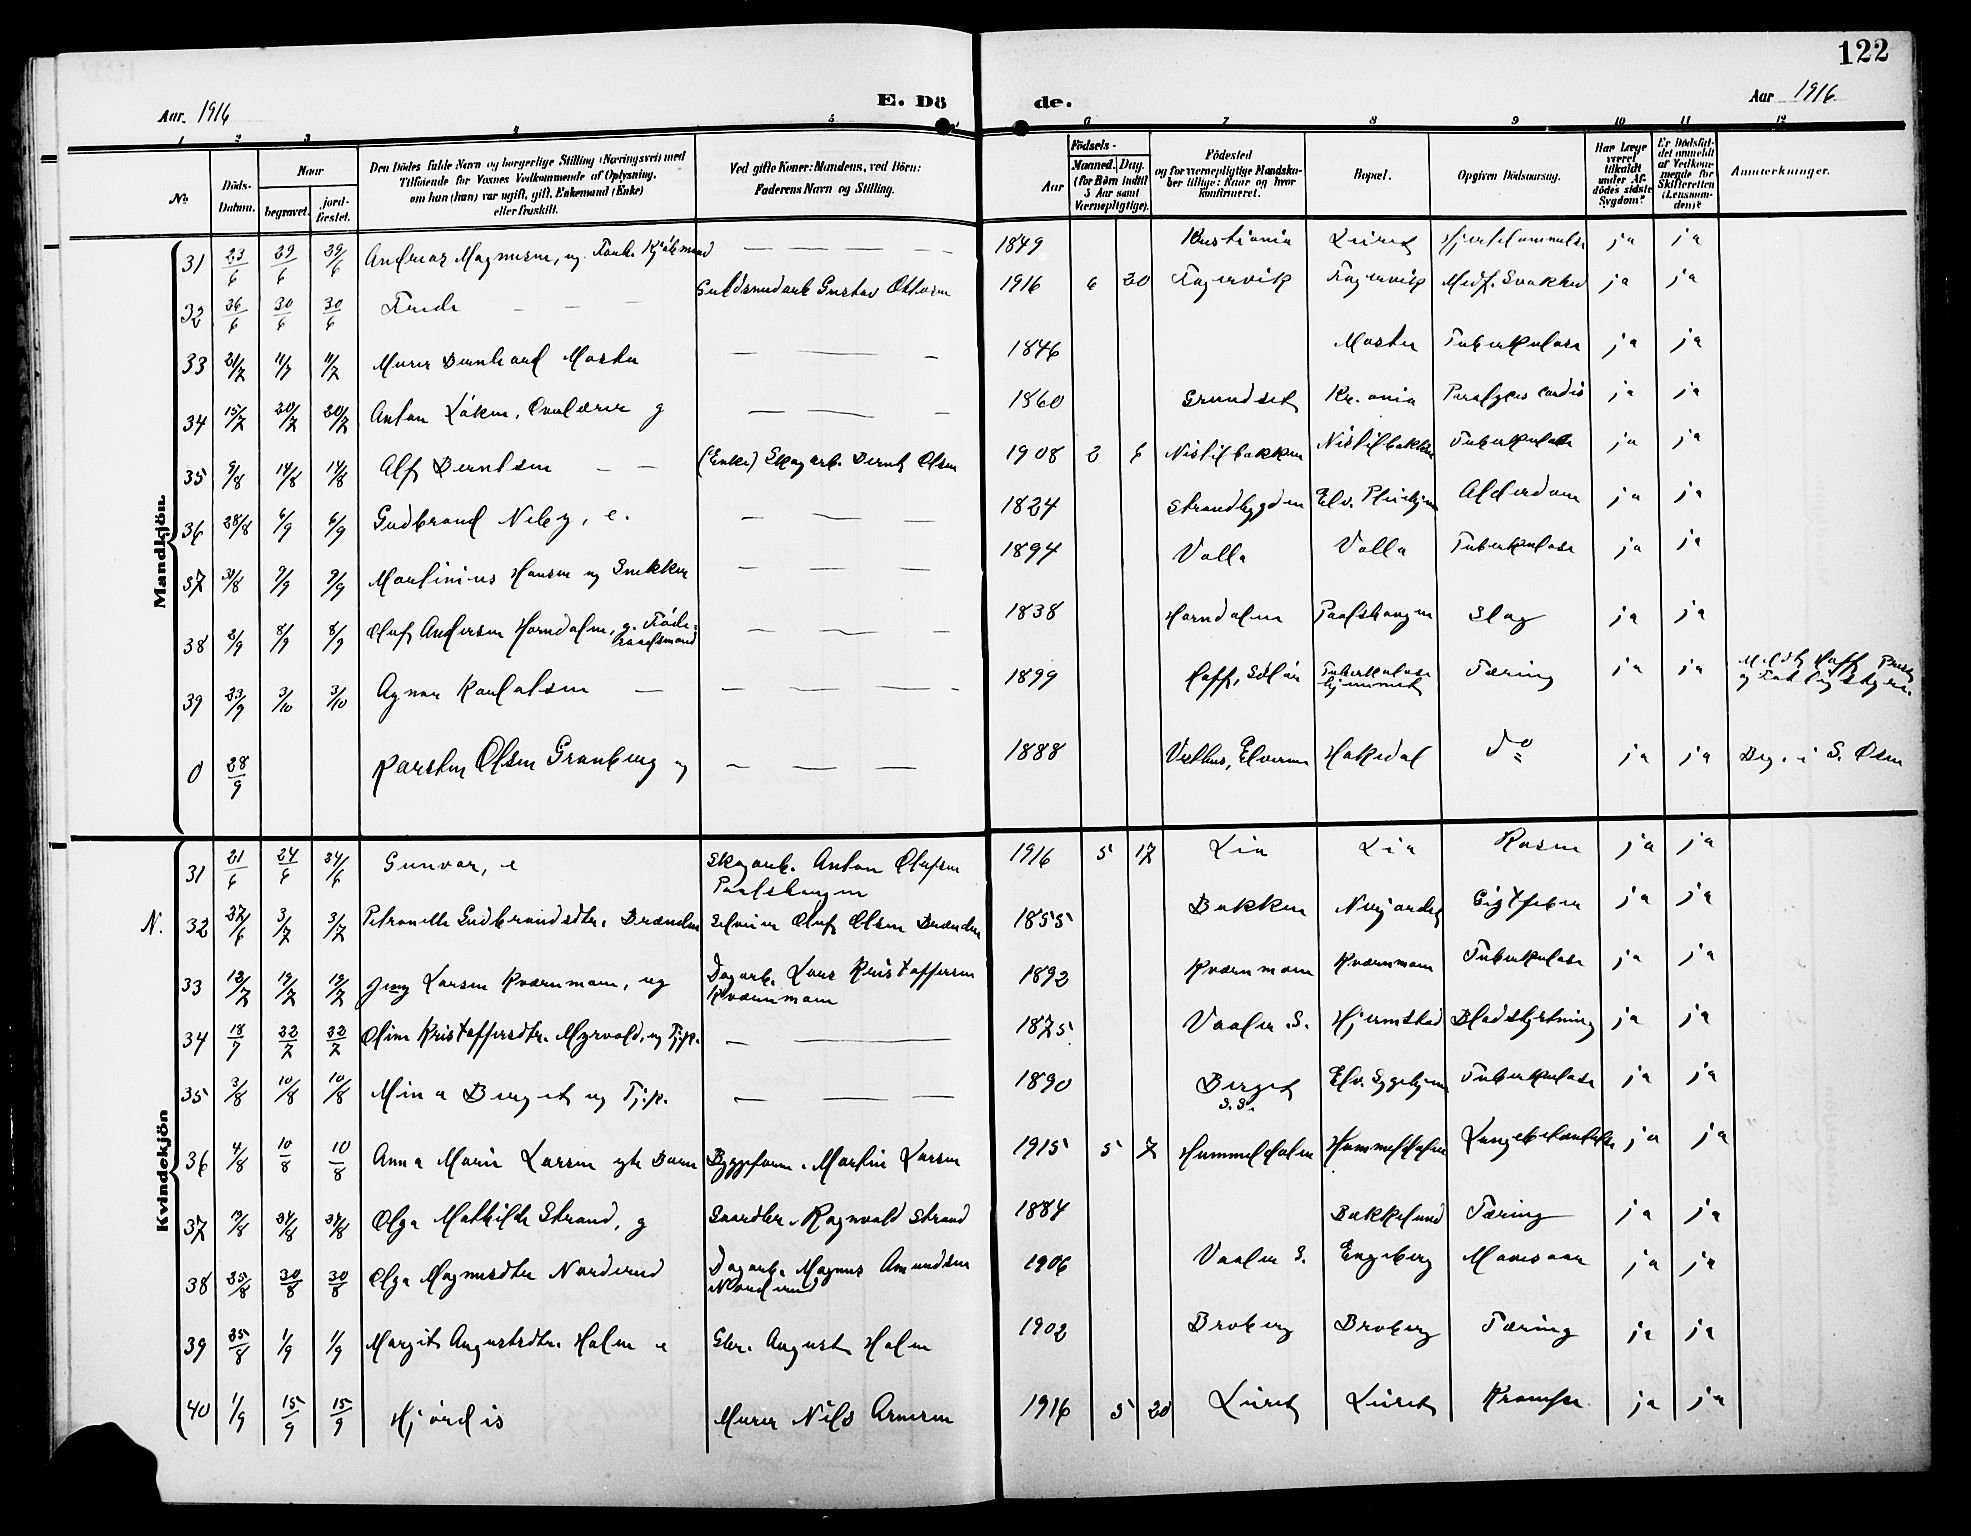 122
Aar 1916 E. Dö de. Aar 1916
1 2 3 4 5 6 7 8 9 10 11 12
No Döds-Datum. Naar begravet. jord-fæstet. Den Dödes fulde Navn og borgerlige Stilling (Næringsvei) med Tilföiende for Voxnes Vedkommende af Oplysning, om han (hun) var ugift, gift, Enkemand (Enke) eller fraskilt. Ved gifte Koner: Mandens, ved Börn: Faderens Navn og Stilling. Födsels- Aar Maaned. Dag. (for Börn indtil 5 Aar samt Værnepligtige). Födested og for værnepligtige Mandskaber tillige: Naar og hvor konfirmeret. Bopæl. Opgiven Dödsaarsag. Har Læge været tilkaldt under Afdödes sidste Sygdom? Er Dödsfaldet anmeldt af Vedkommende for Skifteretten (Lensmanden)? Anmærkninger.
Mandkjön
31 23/6 29/6 29/6 Andreas Magnusen, ug. — — — — 1849 Kristiania Leiret ja ja
32 26/6 30/6 30/6 Frede — — Guldsmedarb Gustav Ottosen 1916 6 20 Fagervik Fagervik Medf. Svakhed ja ja
33 21/7 11/7 11/7 Murer Bernhard Moster — — — 1846 Moster Tuberkulose ja ja
34 15/7 20/7 20/7 Anton Løken, g — — — 1860 Grundset Kr.ania Paralyses cordis ja ja
35 9/8 14/8 14/8 Alf Berntsen — — (Enke) Skogarb. Bernt Olsen 1908 2 6 Nistilbakken Nistilbakken Tuberkulose ja ja
36 28/8 6/9 6/9 Gudbrand Neby, e. — — — 1824 Strandbygden Elv. Pleiehjem Alderdom ja ja
37 31/8 9/9 9/9 Martinius Hansen ug Snekker — — — 1894 Volla Volla Tuberkulose ja ja
38 2/9 8/9 8/9 Oluf Andersen Horndalen, g. Føde-
raadsmand — — — 1838 Horndalen Paalshaugen Slag ja ja
39 23/9 3/10 3/10 Agnar Karlolsen — — — — — 1899 Hoff, Solør Tuberkulose
hjemmet Tæring ja ja
0 28/9 Karsten Olsen Granberg ug — — — 1888 Vesthus, Elverum Hakedal do ja ja Beg. i S. Osen
Kvindekjön
31 21/6 24/6 24/6 Gunvor, e Skogarb. Anton Olufsen
Paalshaugen 1916 5 17 Lia Lia Rosen ja ja
N. 32 27/6 3/7 3/7 Petronelle Gudbrandsdtr. Brænden Selveier Oluf Olsen Brænden 1855 Bakken Nergardet Gigtfeber ja ja
33 13/7 19/7 19/7 Jenny Larsen Kvernmoen, ug Dagarb. Lars Kristoffersen
Kvernmoen 1892 Kvernmoen Kvernmoen Tuberkulose ja ja
34 18/7 22/7 22/7 Oline Kristoffersdtr. Myrvold, ug Tj.p. — — 1875 Vaaler S. Hjermstad Blodstyrtning ja ja
35 3/8 10/8 10/8 Mina Berget ug Tj.p. — — — 1890 Berget
S.S. Elv. Sygehjem Tuberkulose ja ja
36 4/8 10/8 10/8 Anna Marie Larsen egte Barn Byggeform. Martin Larsen 1915 5 7 Hummeldalen Hummeldalen Lungebetændelse ja ja
37 19/8 24/8 24/8 Olga Mathilde Strand, g Gaardbr. Ragnvald Strand 1884 Bakkelund Tæring ja ja
38 25/8 30/8 30/8 Olga Magnusdtr Norderud Dagarb. Magnus Amundsen
Norderud 1906 Vaaler S. Engeberg Mavesaar ja ja
39 25/8 1/9 1/9 Margit Augustsdtr. Holm e Gbr. August Holm 1902 Broberg Broberg Tæring ja ja
40 1/9 15/9 15/9 Hjørdis Murer Nils Arnesen 1916 5 20 Leiret Leiret Krampe ja ja